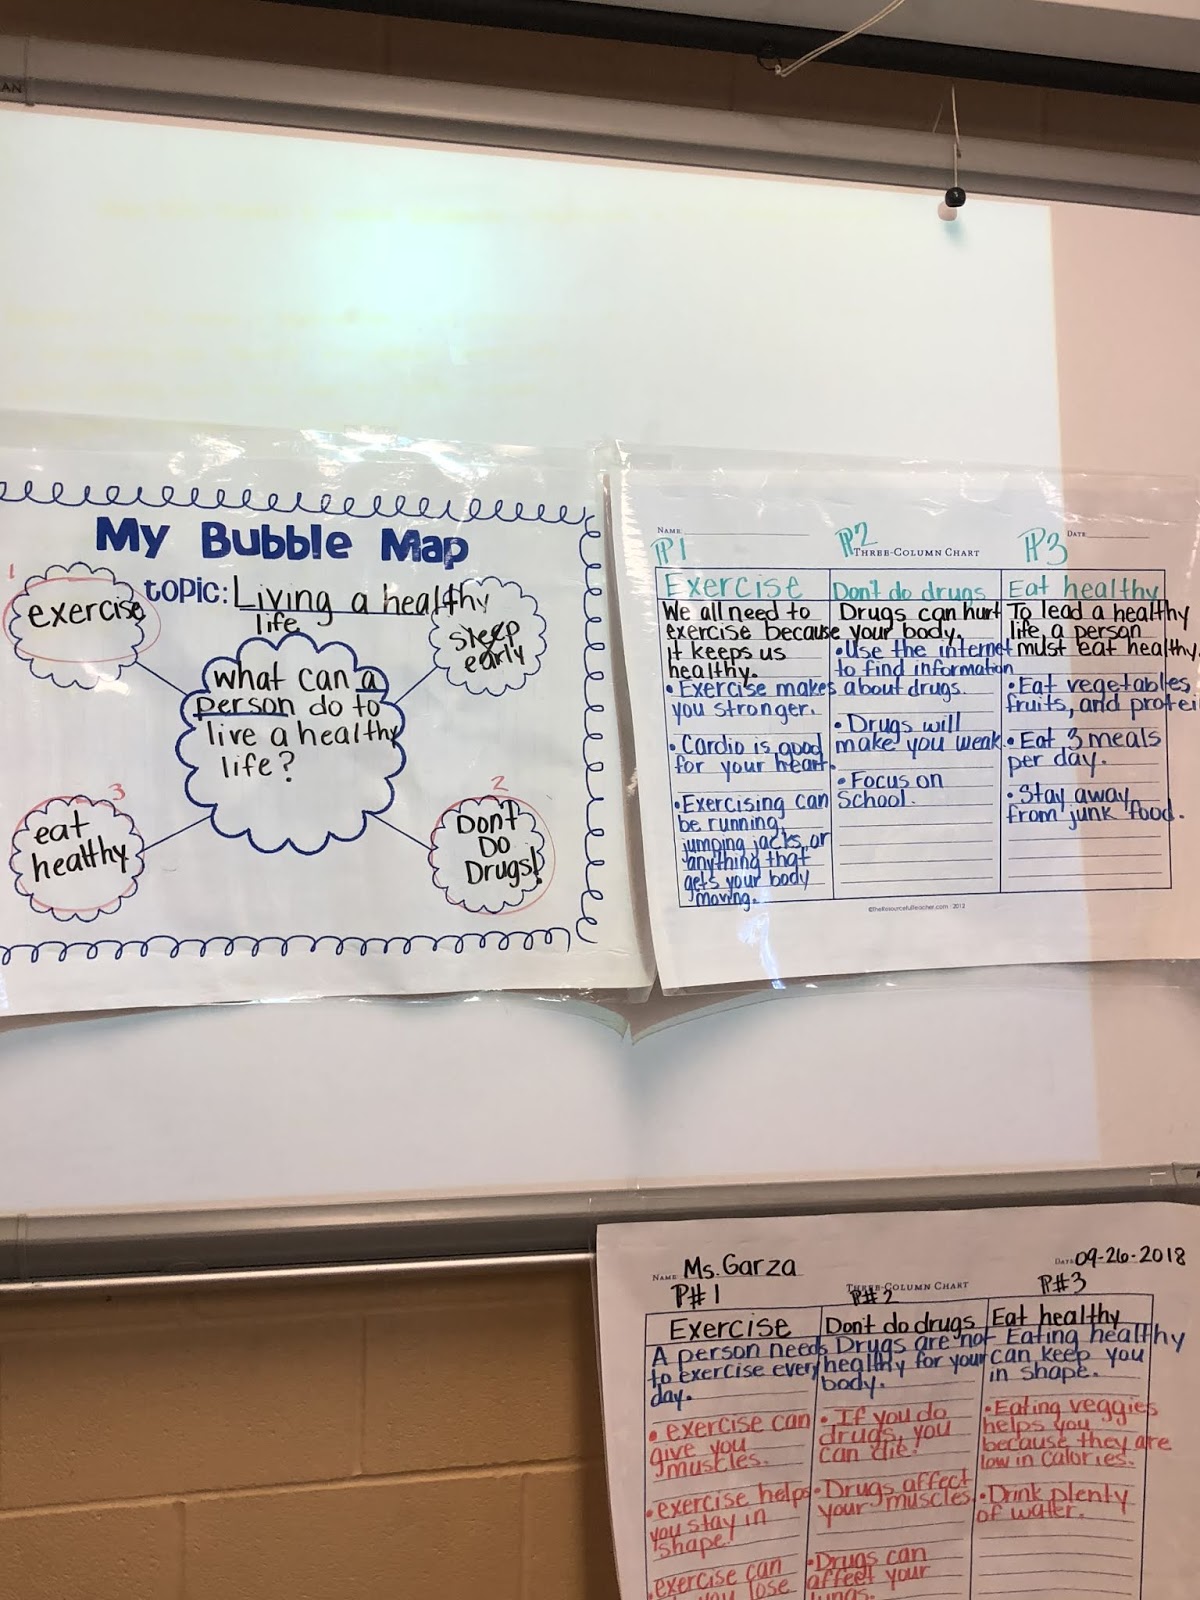 AN
My Bubble Map
topic: Living a healthy
life
1
exercise
sleep
early
what can a
person do to
live a healthy
life?
3
eat
healthy
2
Don't
Do
Drugs!
NAME
DATE
P1
P2
P3
THREE-COLUMN CHART
Exercise
We all need to
exercise because
it keeps us
healthy.
• Exercise makes
you stronger.
• Cardio is good
for your heart.
• Exercising can
be running,
jumping jacks, or
anything that
gets your body
moving.
Don't do drugs
Drugs can hurt
your body.
• Use the internet
to find information
about drugs.
• Drugs will
make you weak.
• Focus on
School.
Eat healthy
To lead a healthy
life, a person
must eat healthy.
• Eat vegetables,
fruits, and protei
• Eat 3 meals
per day.
• Stay away
from junk food.
©theResourcefulTeacher.com 2012
NAME Ms. Garza
DATE 09-26-2018
THREE-COLUMN CHART
P#1
P#2
P#3
Exercise
A person needs
to exercise every
day.
• exercise can
give you
muscles.
• exercise helps
you stay in
shape!
• exercise can
you lose
Don't do drugs
Drugs are not
healthy for your
body.
• If you do
drugs, you
can die!
• Drugs affect
your muscles
• Drugs can
affect your
lungs.
Eat healthy
Eating healthy
can keep you
in shape.
• Eating veggies
helps you
because they are
low in calories.
• Drink plenty
of water.